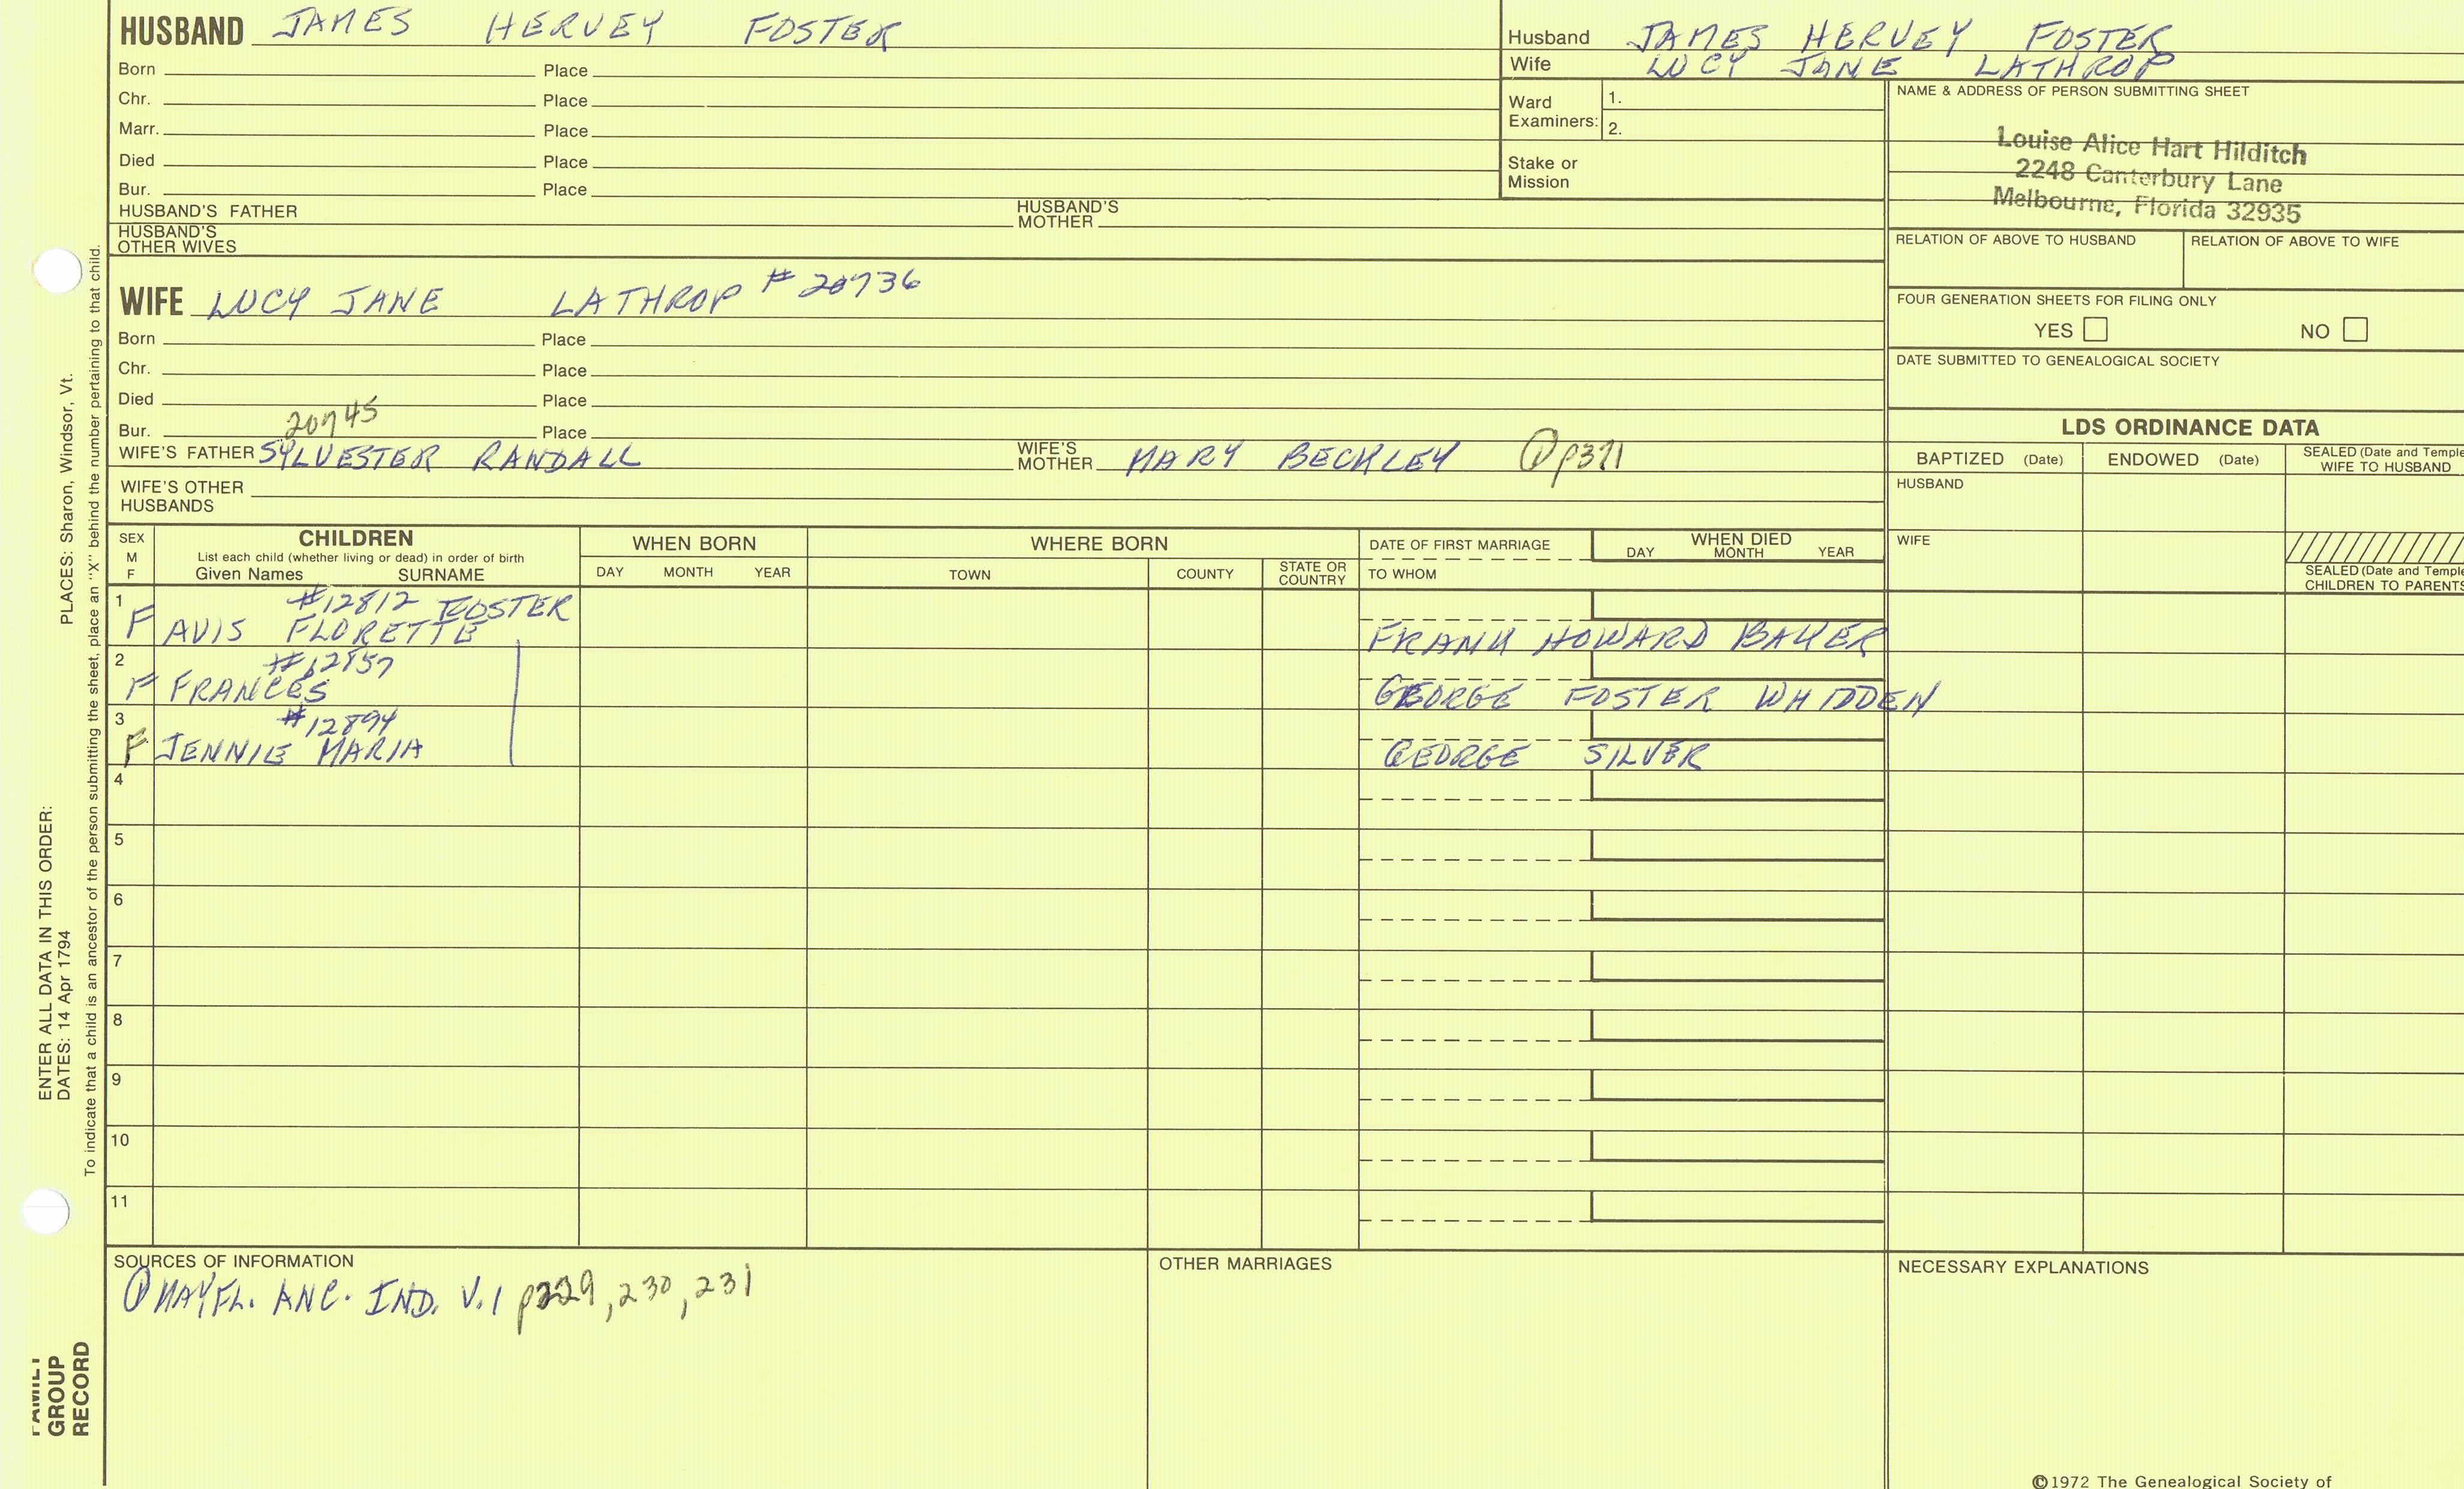 HUSBAND JAMES HERVEY FOSTER
Born Place
Chr. Place
Marr. Place
Died Place
Bur. Place
HUSBAND'S FATHER HUSBAND'S MOTHER
HUSBAND'S OTHER WIVES
Husband JAMES HERVEY FOSTER
Wife LUCY JANE LATHROP
Ward Examiners: 1.
2.
Stake or Mission
NAME & ADDRESS OF PERSON SUBMITTING SHEET
Louise Alice Hart Hilditch
2248 Canterbury Lane
Melbourne, Florida 32935
RELATION OF ABOVE TO HUSBAND RELATION OF ABOVE TO WIFE
FOUR GENERATION SHEETS FOR FILING ONLY
YES NO
DATE SUBMITTED TO GENEALOGICAL SOCIETY
WIFE LUCY JANE LATHROP #20736
Born Place
Chr. Place
Died Place
20745
Bur. Place
WIFE'S FATHER SYLVESTER RANDALL WIFE'S MOTHER MARY BECKLEY ① p371
WIFE'S OTHER HUSBANDS
LDS ORDINANCE DATA
BAPTIZED (Date) ENDOWED (Date) SEALED (Date and Temple
WIFE TO HUSBAND
HUSBAND
WIFE
SEALED (Date and Temple
CHILDREN TO PARENTS
SEX
M
F
CHILDREN
List each child (whether living or dead) in order of birth
Given Names SURNAME
WHEN BORN
DAY MONTH YEAR
WHERE BORN
TOWN COUNTY STATE OR COUNTRY
DATE OF FIRST MARRIAGE
TO WHOM
WHEN DIED
DAY MONTH YEAR
1 #12812 FOSTER
F AVIS FLORETTE FRANK HOWARD BAKER
2 #12857
F FRANCES GEORGE FOSTER WHIDDEN
3 #12894
F JENNIE MARIA GEORGE SILVER
4
5
6
7
8
9
10
11
SOURCES OF INFORMATION
① MAYFL. ANC. IND. V.1 p229, 230, 231
OTHER MARRIAGES
NECESSARY EXPLANATIONS
©1972 The Genealogical Society of
PLACES: Sharon, Windsor, Vt.
ENTER ALL DATA IN THIS ORDER:
DATES: 14 Apr 1794
To indicate that a child is an ancestor of the person submitting the sheet, place an "X" behind the number pertaining to that child.
FAMILY
GROUP
RECORD